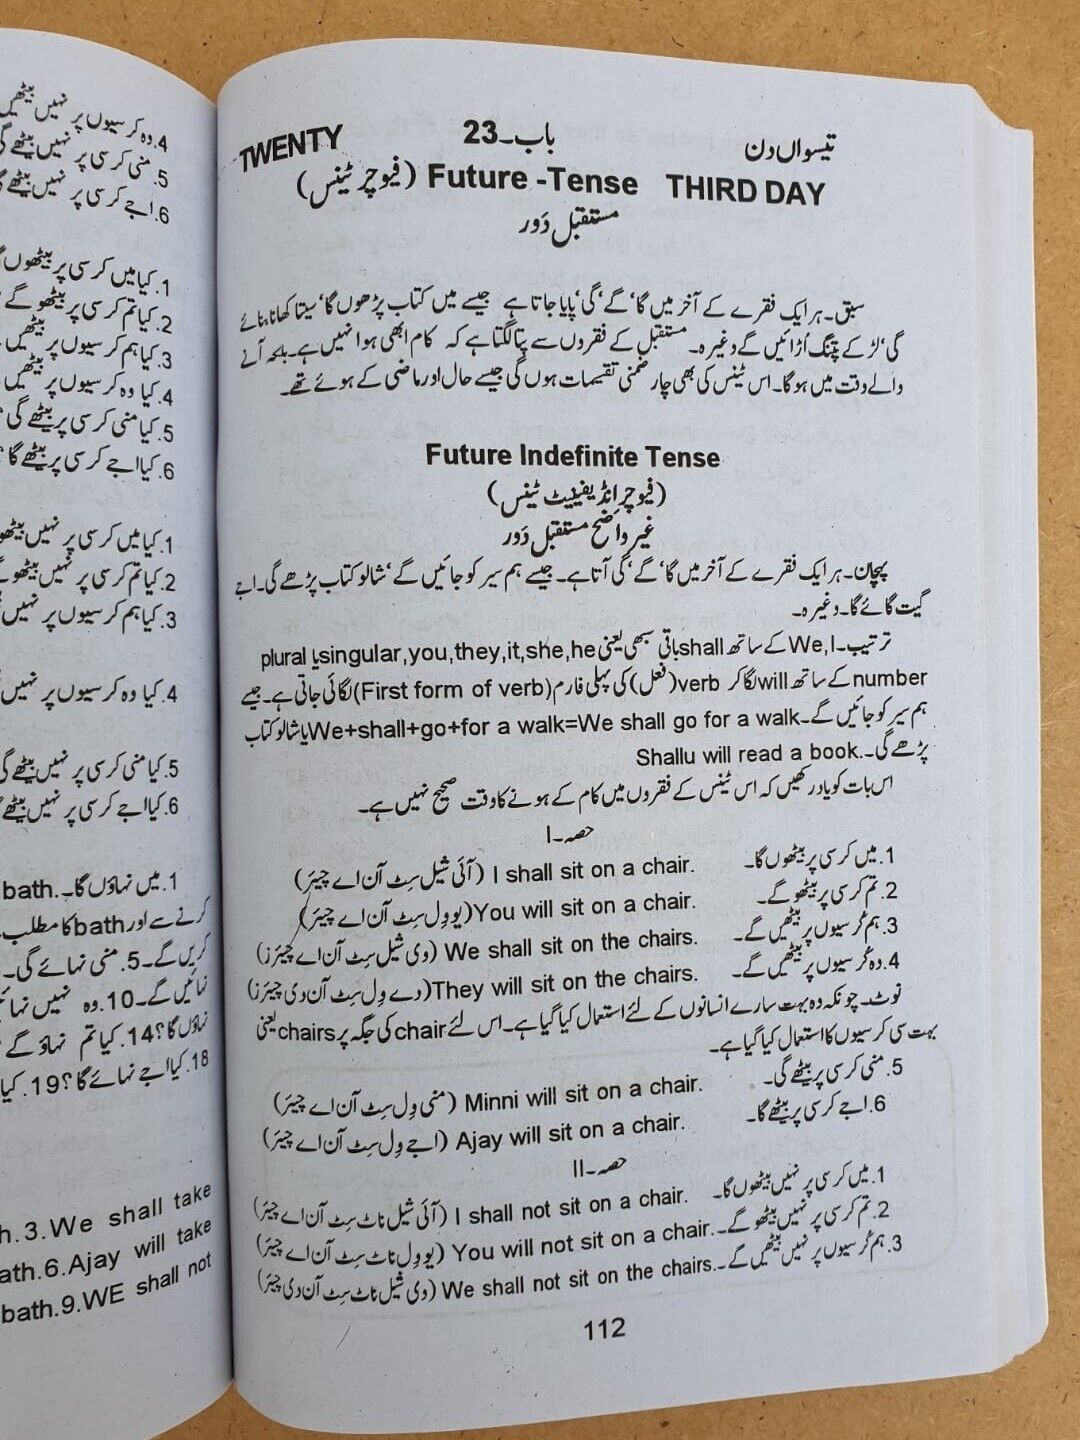 4. وہ کرسیوں پر نہیں بیٹھیں
5. منی کرسی پر نہیں بیٹھے گی
6. اجے کرسی پر نہیں بیٹھے گا
1. کیا میں کرسی پر بیٹھوں گا
2. کیا تم کرسی پر بیٹھو گے
3. کیا ہم کرسیوں پر بیٹھیں
4. کیا وہ کرسیوں پر بیٹھیں
5. کیا منی کرسی پر بیٹھے گی
6. کیا اجے کرسی پر بیٹھے گا ؟
1. کیا میں کرسی پر نہیں بیٹھو
2. کیا تم کرسی پر نہیں بیٹھو گے
3. کیا ہم کرسیوں پر نہیں
4. کیا وہ کرسیوں پر نہیں
5. کیا منی کرسی پر نہیں بیٹھے گی
6. کیا اجے کرسی پر نہیں بیٹھے
1. میں نہاؤں گا۔ bath.
کرنے سے اور bath کا مطلب
کریں گے۔ 5. منی نہائے گی۔
نہائیں گے۔ 10. وہ نہیں نہا
نہاؤں گا؟ 14. کیا تم نہاؤ گے
18. کیا اجے نہائے گا؟ 19. کیا
h.3.We shall take
ath.6.Ajay will take
bath.9.WE shall not
TWENTY باب۔ 23 تیسواں دن
(فیوچر ٹینس) Future -Tense THIRD DAY
مستقبل دَور
سبق۔ ہر ایک فقرے کے آخر میں گا‘ گے‘ گی‘ پایا جاتا ہے جیسے میں کتاب پڑھوں گا‘ سیتا کھانا بنائے
گی‘ لڑکے پتنگ اُڑائیں گے وغیرہ۔ مستقبل کے فقروں سے پتا لگتا ہے کہ کام ابھی ہوا نہیں ہے۔ بلکہ آنے
والے وقت میں ہوگا۔ اس ٹینس کی بھی چار ضمنی تقسیمات ہوں گی جیسے حال اور ماضی کے ہوئے تھے۔
Future Indefinite Tense
(فیوچر اِنڈیفینیٹ ٹینس)
غیر واضح مستقبل دَور
پہچان۔ ہر ایک فقرے کے آخر میں گا‘ گے‘ گی آتا ہے۔ جیسے ہم سیر کو جائیں گے‘ شالو کتاب پڑھے گی۔ اجے
گیت گائے گا۔ وغیرہ۔
ترتیب۔ We,I کے ساتھ shall باقی سبھی یعنی singular,you,they,it,she,he یا plural
number کے ساتھ will لگا کر verb (فعل) کی پہلی فارم (First form of verb) لگائی جاتی ہے۔ جیسے
ہم سیر کو جائیں گے۔ We+shall+go+for a walk=We shall go for a walk یا شالو کتاب
پڑھے گی۔ Shallu will read a book.
اس بات کو یاد رکھیں کہ اس ٹینس کے فقروں میں کام کے ہونے کا وقت صحیح نہیں ہے۔
حصہ۔ I
1. میں کرسی پر بیٹھوں گا۔ I shall sit on a chair. (آئی شیل سِٹ آن اے چیئر)
2. تم کرسی پر بیٹھو گے۔ You will sit on a chair. (یو وِل سِٹ آن اے چیئر)
3. ہم کُرسیوں پر بیٹھیں گے۔ We shall sit on the chairs. (وی شیل سِٹ آن اے چیئرز)
4. وہ کُرسیوں پر بیٹھیں گے۔ They will sit on the chairs. (دے وِل سِٹ آن دی چیئرز)
نوٹ۔ چونکہ وہ بہت سارے انسانوں کے لئے استعمال کیا گیا ہے۔ اس لئے chair کی جگہ پر chairs یعنی
بہت سی کرسیوں کا استعمال کیا گیا ہے۔
5. منی کرسی پر بیٹھے گی۔ Minni will sit on a chair. (منی وِل سِٹ آن اے چیئر)
6. اجے کرسی پر بیٹھے گا۔ Ajay will sit on a chair. (اجے وِل سِٹ آن اے چیئر)
حصہ۔ II
1. میں کرسی پر نہیں بیٹھوں گا۔ I shall not sit on a chair. (آئی شیل ناٹ سِٹ آن اے چیئر)
2. تم کرسی پر نہیں بیٹھو گے۔ You will not sit on a chair. (یو وِل ناٹ سِٹ آن اے چیئر)
3. ہم کُرسیوں پر نہیں بیٹھیں گے۔ We shall not sit on the chairs. (وی شیل ناٹ سِٹ آن دی چیئر)
112